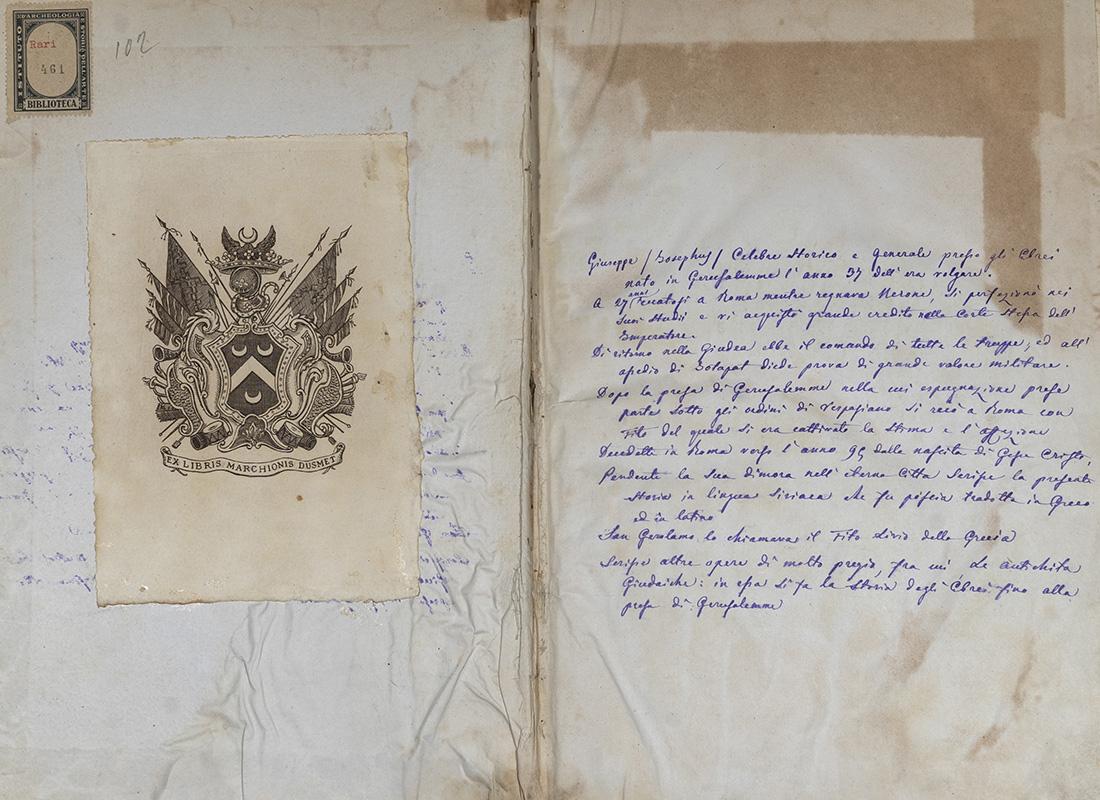 ISTITUTO D'ARCHEOLOGIA E STORIA DELL'ARTE
Rari
461
BIBLIOTECA
102
EX LIBRIS MARCHIONIS DUSMET
Giuseppe /Josephus/ Celebre Storico e generale presso gli Ebrei
nato in Gerusalemme l'anno 37 dell'era volgare.
A 27 anni recatosi a Roma mentre regnava Nerone, si perfezionò nei
suoi studi e vi acquistò grande credito nella Corte stessa dell'
Imperatore.
Di ritorno nella Giudea ebbe il comando di tutte le truppe, ed all'
assedio di Jotapat diede prova di grande valore militare.
Dopo la presa di Gerusalemme nella cui espugnazione prese
parte sotto gli ordini di Vespasiano si recò a Roma con
Tito del quale si era cattivato la stima e l'affezione
Decedette in Roma verso l'anno 95 dalla nascita di Gesù Cristo,
Pendente la sua dimora nell'eterna Città scrisse la presente
Storia in lingua Siriaca che fu poscia tradotta in Greco
ed in latino
San Gerolamo lo chiamava il Tito Livio della Grecia
Scrisse altre opere di molto pregio, fra cui Le antichità
Giudaiche: in essa si fa la Storia degli Ebrei fino alla
presa di Gerusalemme